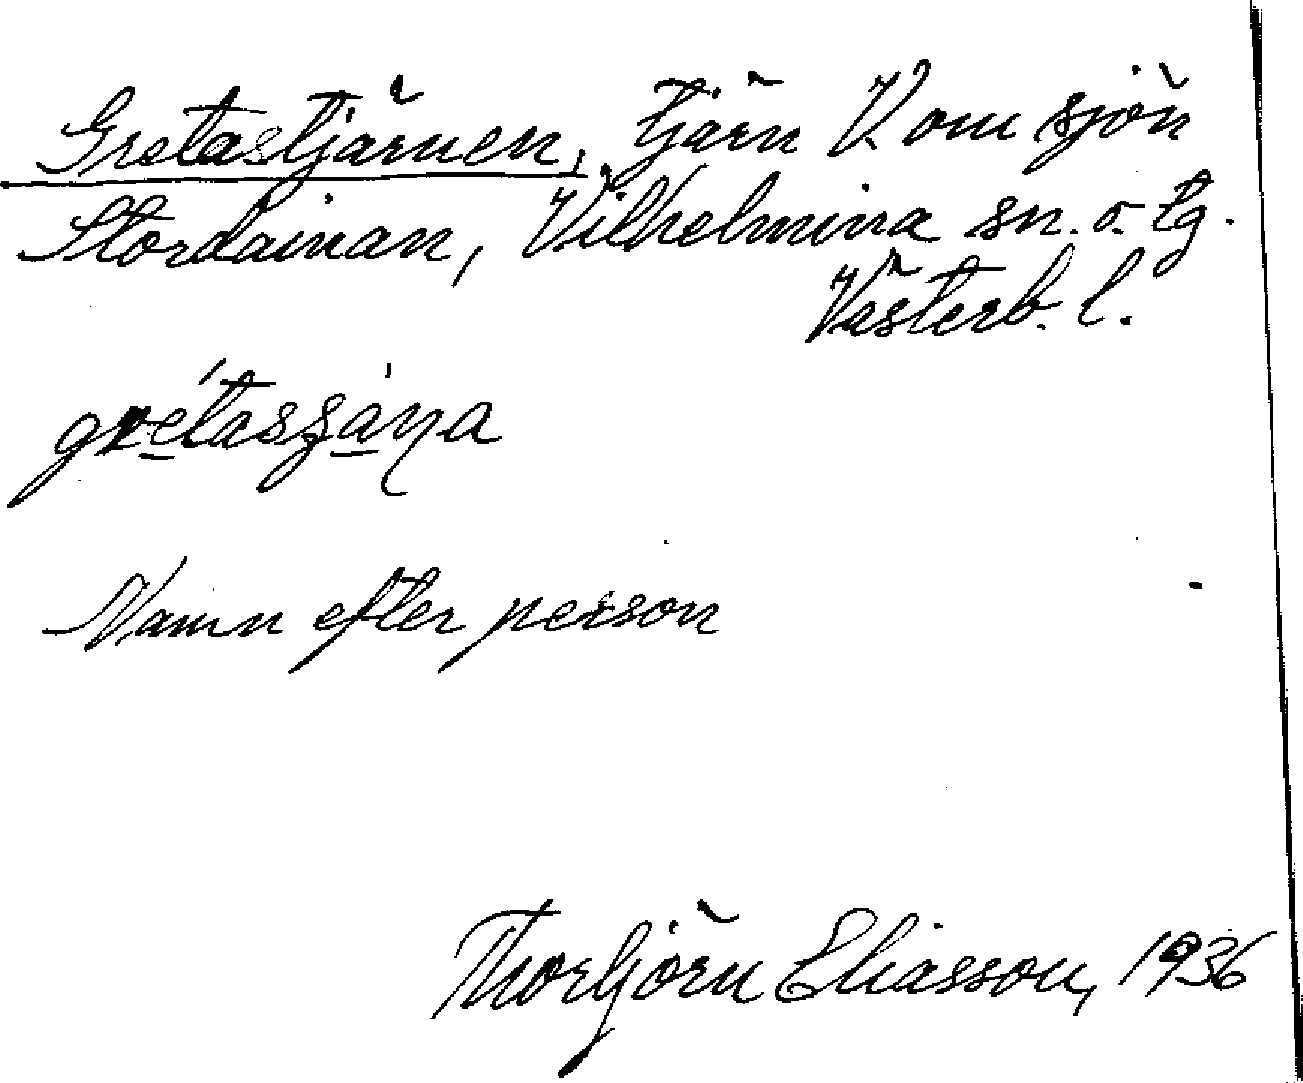 Gretastjärnen, tjärn V om sjön
Stordainan, Vilhelmina sn. o. tg.
Västerb. l.
Namn efter person
Thorbjörn Eliasson, 1936